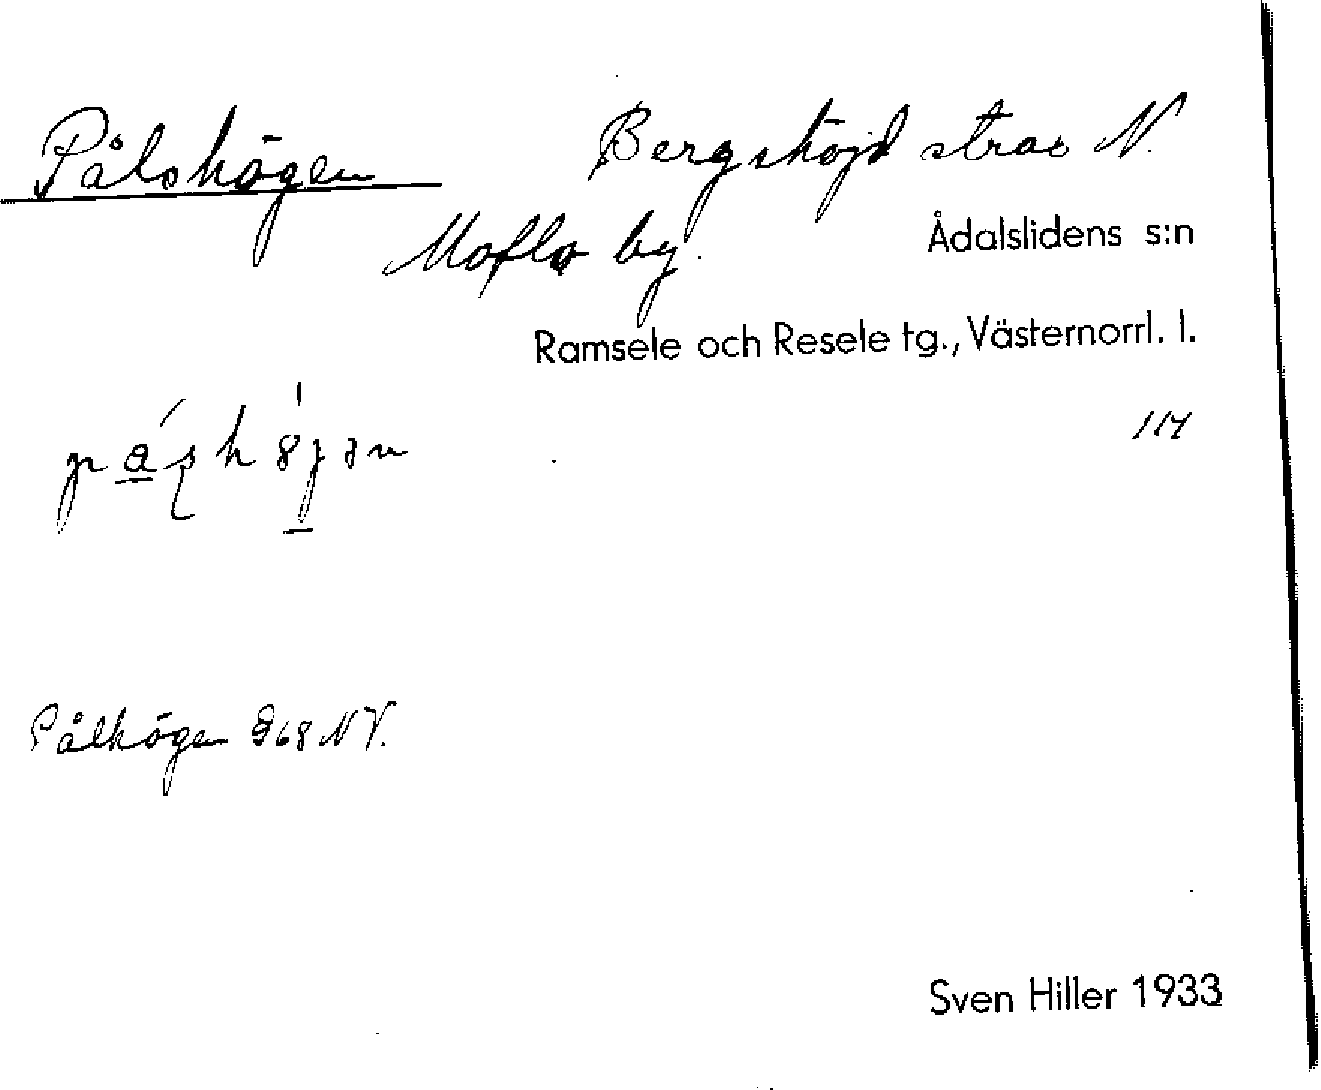 Pålshögen Bergshöjd strax N.
Moflo by. Ådalslidens s:n
Ramsele och Resele tg., Västernorrl. l.
117
Pålhögen 968 NV.
Sven Hiller 1933